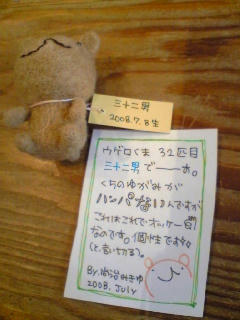 三十二男
2008.7.8生
ウゲロくま 32匹目
三十二男 で――す。
くちのゆがみが
ハンパないんですが
これはこれでオッケー
なのです。個性です
(と、言い切る)。
By.
2008. JULY